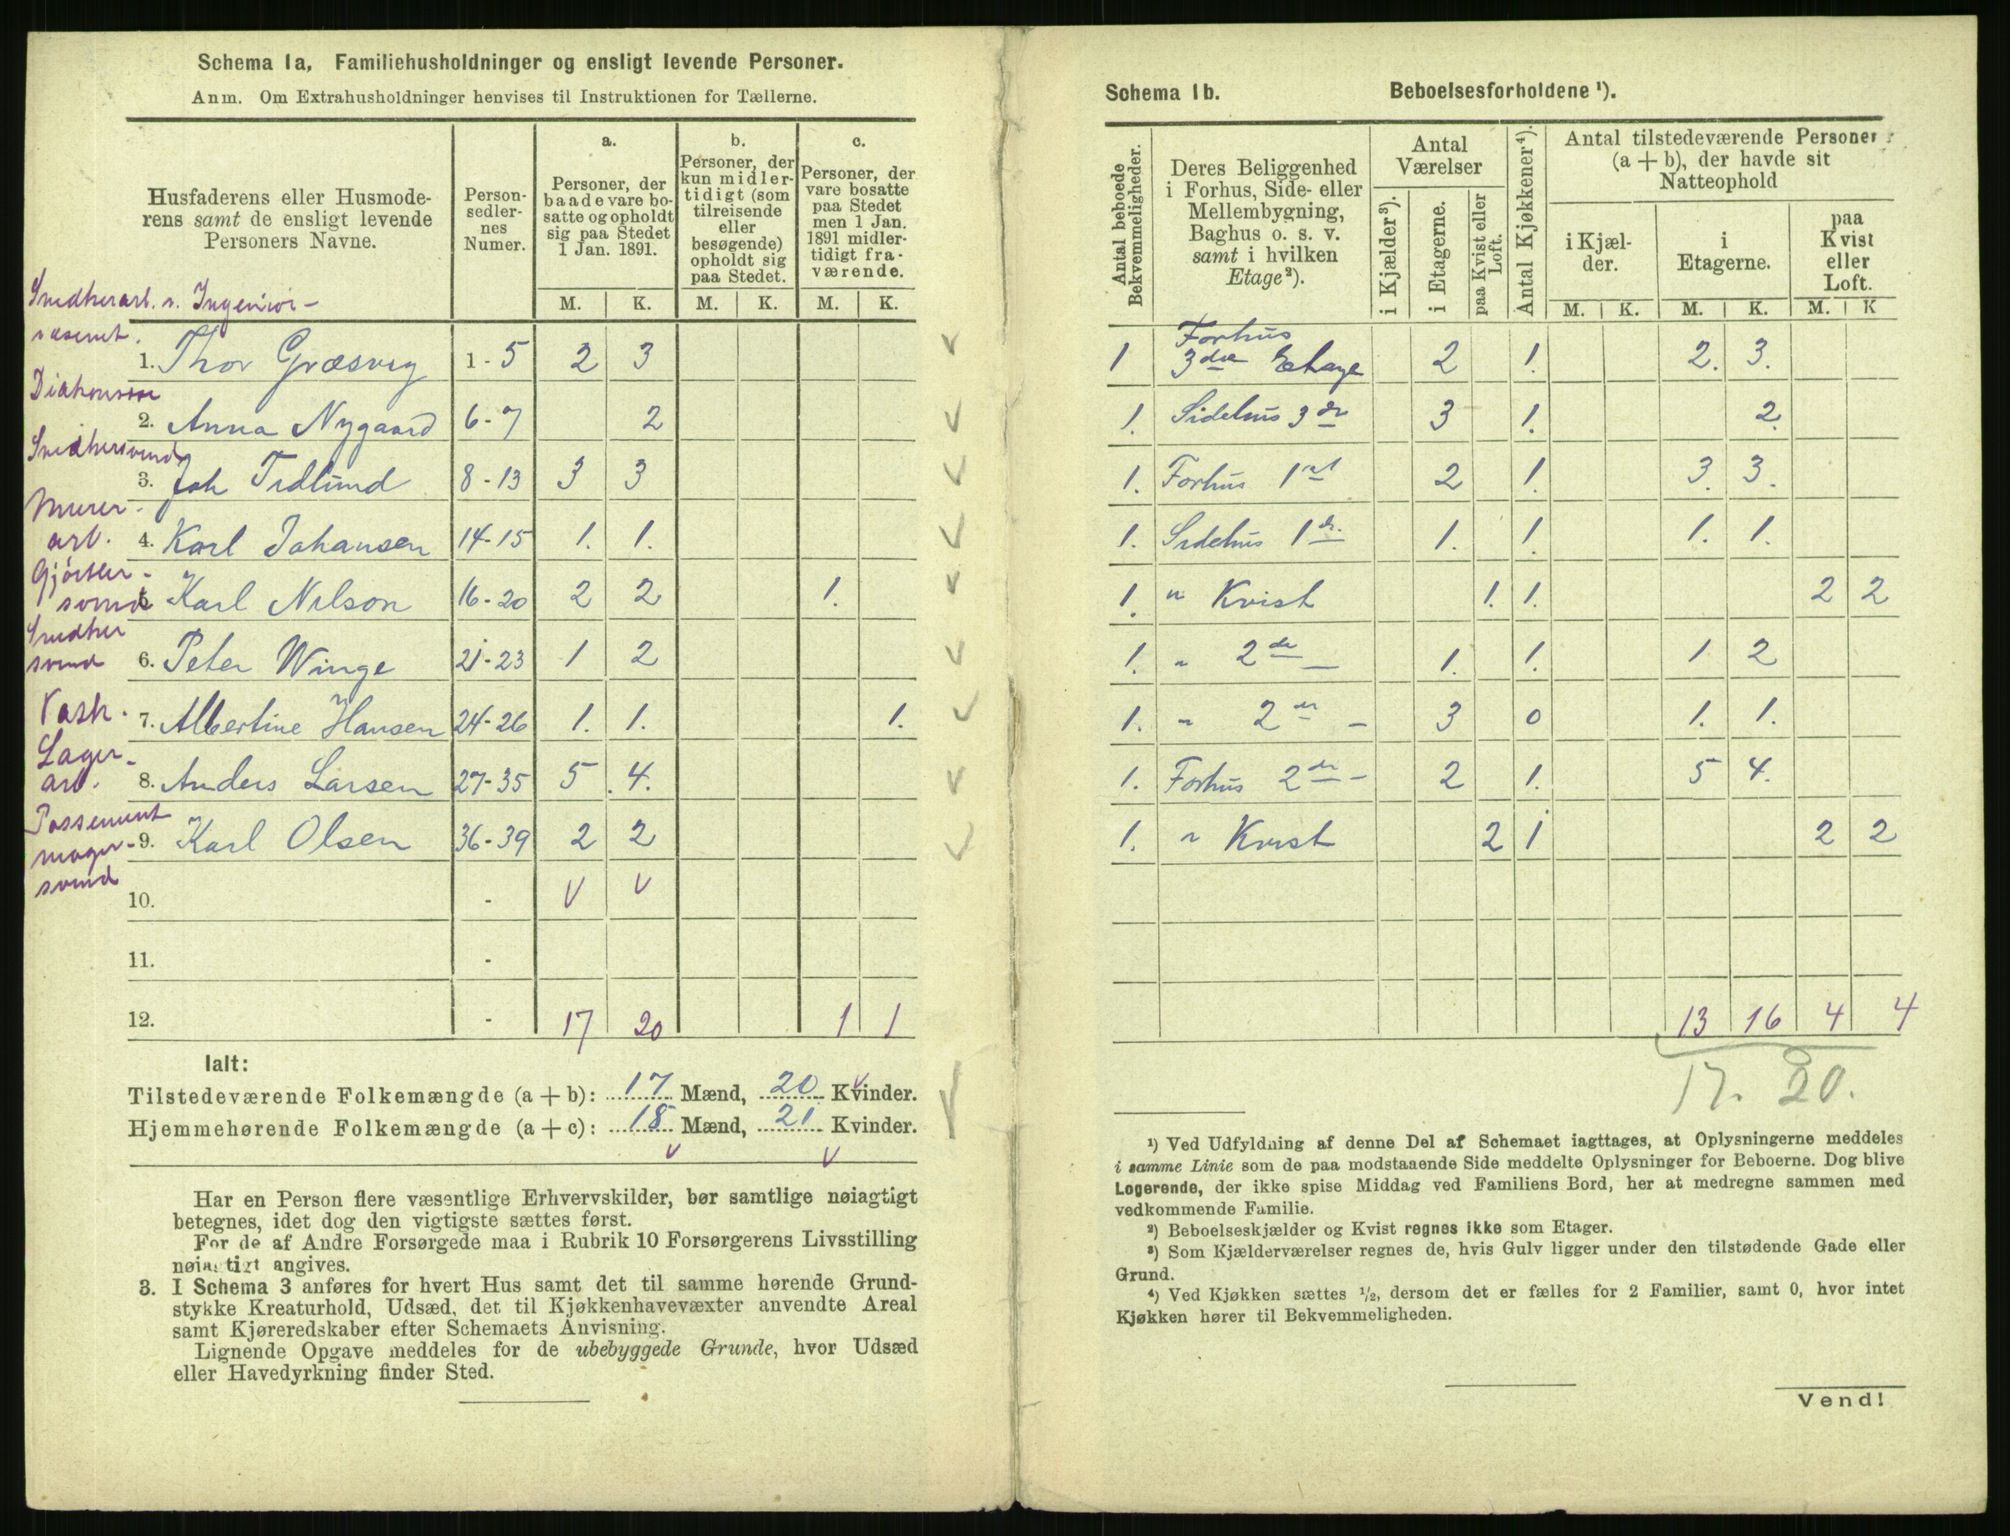 Schema 1a. Familiehusholdninger og ensligt levende Personer.
Anm. Om Extrahusholdninger henvises til Instruktionen for Tællerne.
Husfaderens eller Husmoderens samt de ensligt levende Personers Navne.
Personsedlernes Numer.
a. Personer, der baade vare bosatte og opholdt sig paa Stedet 1 Jan. 1891.
b. Personer, der kun midlertidigt (som tilreisende eller besøgende) opholdt sig paa Stedet.
c. Personer, der vare bosatte paa Stedet men 1 Jan. 1891 midlertidigt fraværende.
M. K. M. K. M. K.
Snedkerarb. v. Ingeniør-
væsenet.
1. Thor Græsvig 1-5 2 3
Diakonisse
2. Anna Nygaard 6-7 2
Snedkersvend
3. Joh Fredlund 8-13 3 3
Murer-
arb.
4. Karl Johansen 14-15 1. 1.
Gjørtler-
svend
5. Karl Nilson 16-20 2 2 1.
Snedker
svend
6. Peter Winge 21-23 1 2
Vask.
7. Albertine Hansen 24-26 1. 1. 1.
Lager-
arb.
8. Anders Larsen 27-35 5 4.
Possement
mager-
svend
9. Karl Olsen 36-39 2 2
10. - v v
11. -
12. - 17 20 1 1
Ialt:
Tilstedeværende Folkemængde (a + b): 17 Mænd, 20 Kvinder.
Hjemmehørende Folkemængde (a + c): 18 Mænd, 21 Kvinder.
Har en Person flere væsentlige Erhvervskilder, bør samtlige nøiagtigt
betegnes, idet dog den vigtigste sættes først.
For de af Andre Forsørgede maa i Rubrik 10 Forsørgerens Livsstilling
nøiagtigt angives.
3. I Schema 3 anføres for hvert Hus samt det til samme hørende Grund-
stykke Kreaturhold, Udsæd, det til Kjøkkenhavevæxter anvendte Areal
samt Kjøreredskaber efter Schemaets Anvisning.
Lignende Opgave meddeles for de ubebyggede Grunde, hvor Udsæd
eller Havedyrkning finder Sted.
Schema 1b. Beboelsesforholdene ¹).
Antal beboede Bekvemmeligheder.
Deres Beliggenhed i Forhus, Side- eller Mellembygning, Baghus o. s. v. samt i hvilken Etage ²).
Antal Værelser
i Kjælder ³). i Etagerne. paa Kvist eller Loft.
Antal Kjøkkener ⁴).
Antal tilstedeværende Personer (a + b), der havde sit Natteophold
i Kjælder. i Etagerne. paa Kvist eller Loft.
M. K. M. K. M. K
1 Forhus 3die Etage 2 1. 2. 3.
1. Sidehus 3 de 3 1. 2.
1. Forhus 1 st 2 1. 3. 3.
1. Sidehus 1 de 1. 1. 1. 1.
1. " Kvist 1. 1. 2 2
1. " 2 de 1. 1. 1 2
1. " 2 de - 3 0 1. 1.
1. Forhus 2 de - 2 1. 5 4.
1. " Kvist 2 1 2 2
13 16 4 4
17. 20.
¹) Ved Udfyldning af denne Del af Schemaet iagttages, at Oplysningerne meddeles
i samme Linie som de paa modstaaende Side meddelte Oplysninger for Beboerne. Dog blive
Logerende, der ikke spise Middag ved Familiens Bord, her at medregne sammen med
vedkommende Familie.
²) Beboelseskjælder og Kvist regnes ikke som Etager.
³) Som Kjælderværelser regnes de, hvis Gulv ligger under den tilstødende Gade eller
Grund.
⁴) Ved Kjøkken sættes ½, dersom det er fælles for 2 Familier, samt 0, hvor intet
Kjøkken hører til Bekvemmeligheden.
Vend!